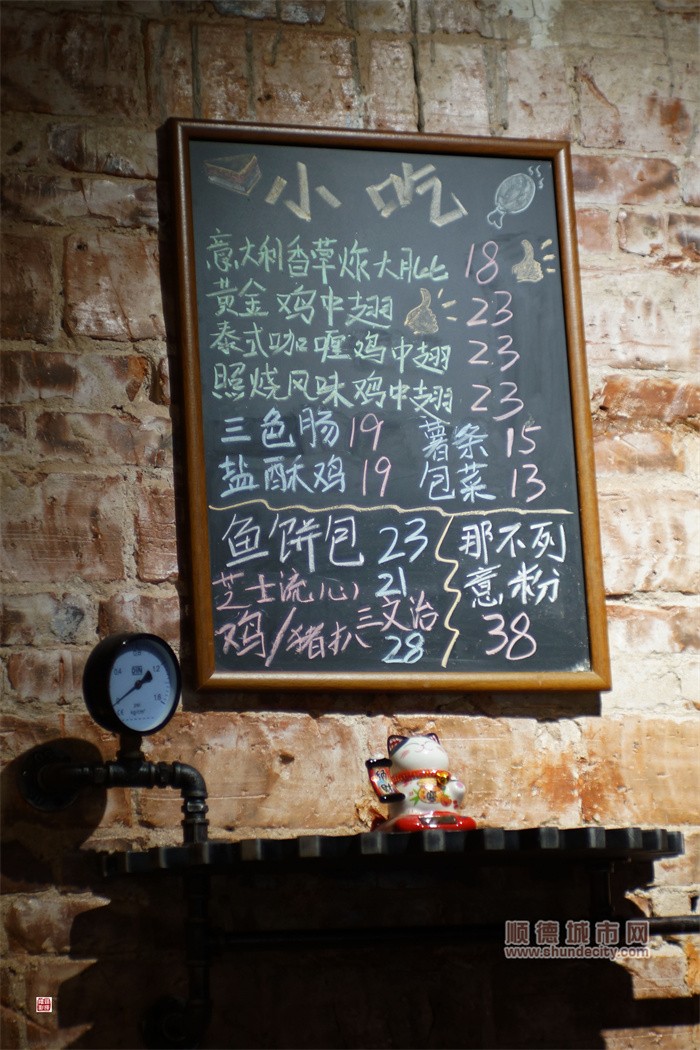 小吃
意大利香草炸大肶 18
黄金鸡中翅 23
泰式咖喱鸡中翅 23
照烧风味鸡中翅 23
三色肠 19 薯条 15
盐酥鸡 19 包菜 13
鱼饼包 23
芝士流(心) 21
鸡/猪扒三文治 28
那不列
意粉
38
顺德城市网
www.shundecity.com